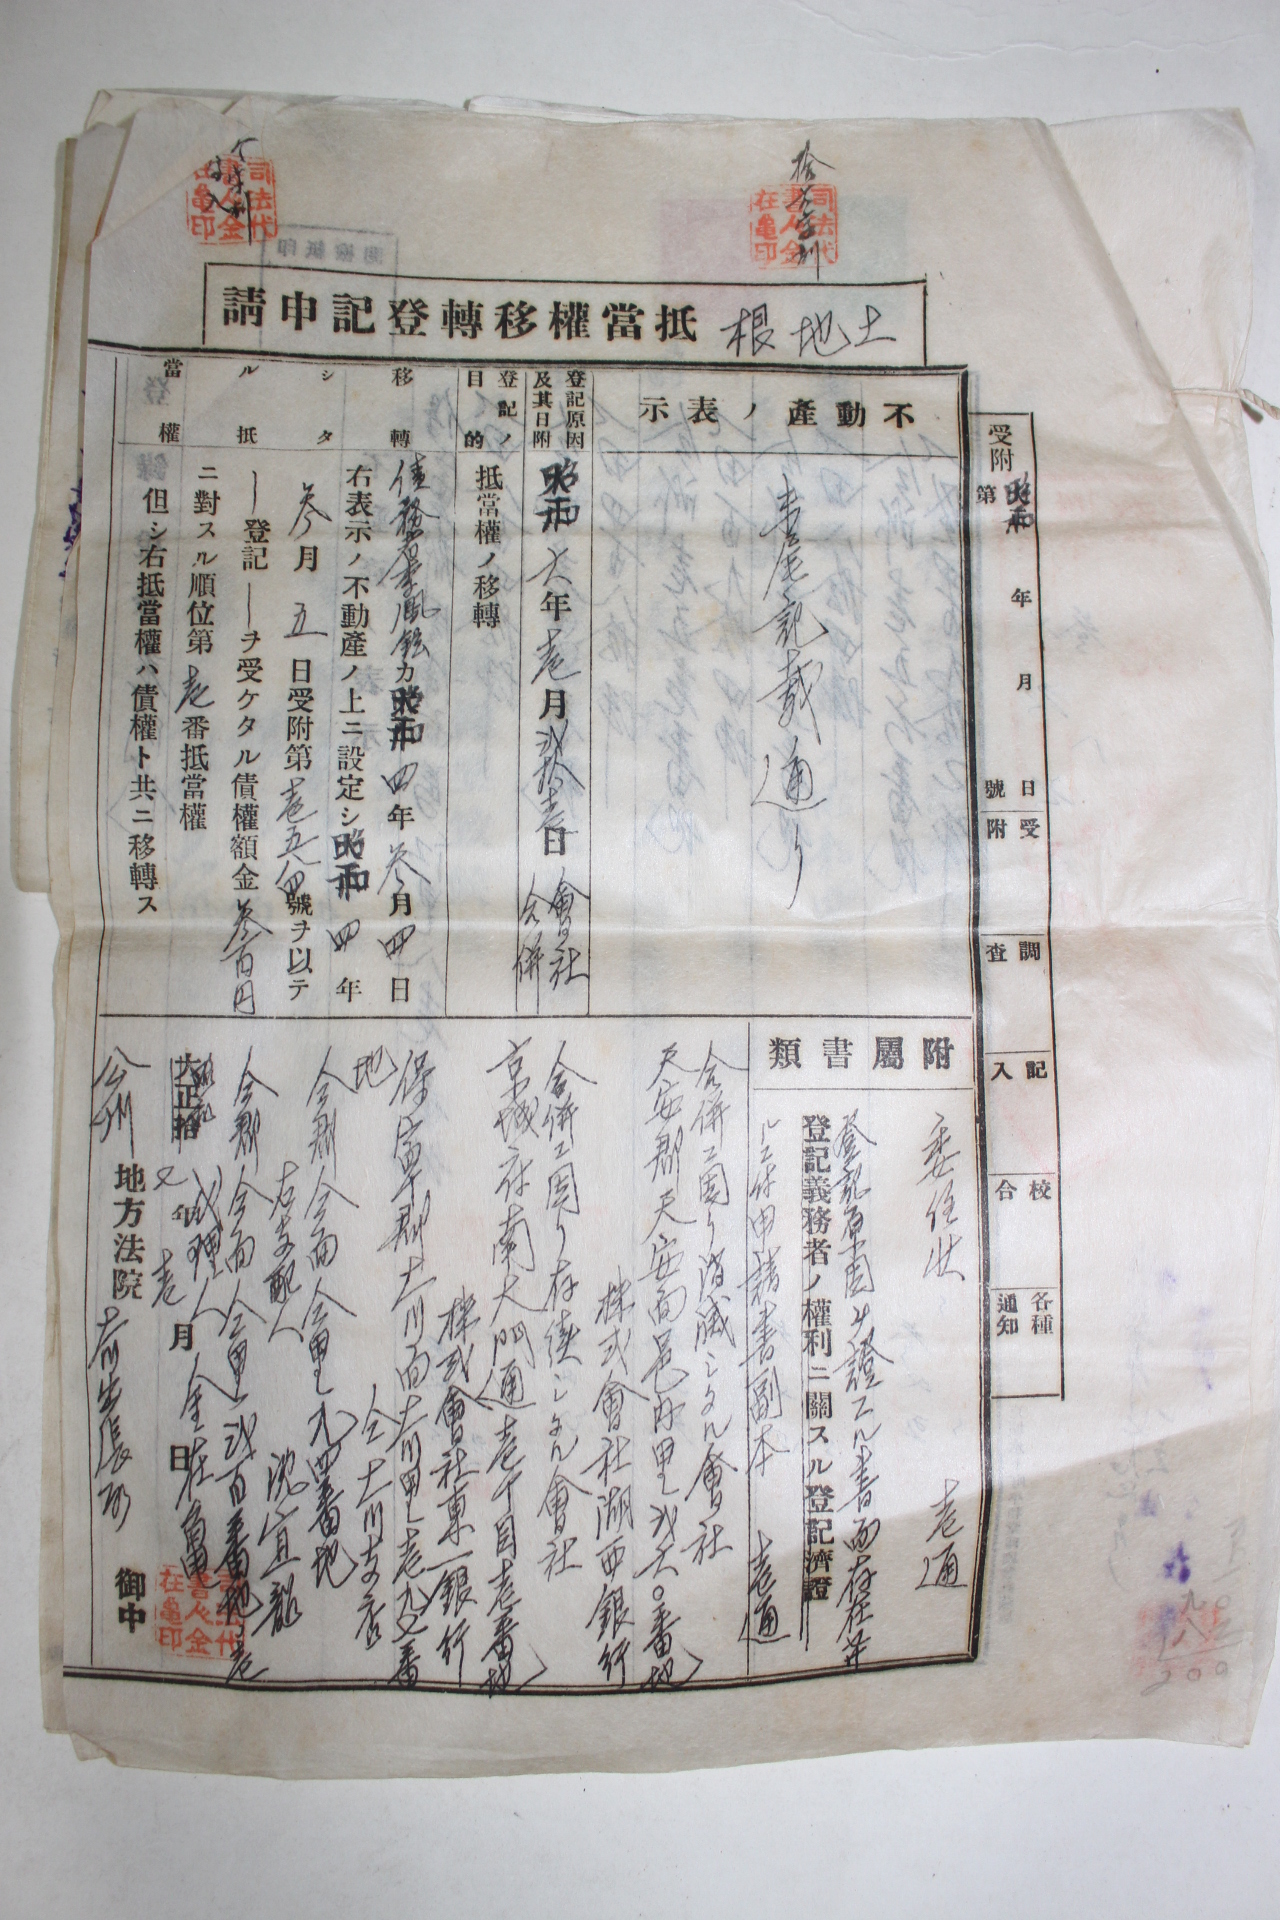 土地根抵當權移轉登記申請
受附
昭和 年 月 日
第 號
受附
調査
記入
校合
各種通知
不動産ノ表示
末尾記載ノ通リ
登記原因及其日附
昭和六年壱月弐拾壱日會社合併
登記ノ目的
抵當權ノ移轉
移轉シタル抵當權
債務者李鳳鉉カ昭和四年参月四日
右表示ノ不動産ノ上ニ設定シ昭和四年
参月五日受附第壱五八四號ヲ以テ
登記ヲ受ケタル債權額金参百円
ニ對スル順位第壱番抵當權
但シ右抵當權ハ債權ト共ニ移轉ス
附屬書類
委任狀 壱通
登記原因ヲ證スル書面存在セサ
登記義務者ノ權利ニ關スル登記濟證
ルニ付申請書副本 壱通
合併ニ因リ消滅シタル會社
天安郡天安面邑内里弐六〇番地
株式會社湖西銀行
合併ニ因リ存續シタル會社
京城府南大門通壱丁目壱番地
株式會社東一銀行
保寧郡大川面大川里壱九七番
地
仝大川支店
仝郡仝面仝里九四番地
右支配人 沈宜
仝郡仝面仝里弐百番地ノ壱
代理人 金在龜
大正拾
昭和七年壱月 日
公州地方法院大川出張所 御中
司法代書人金在龜印